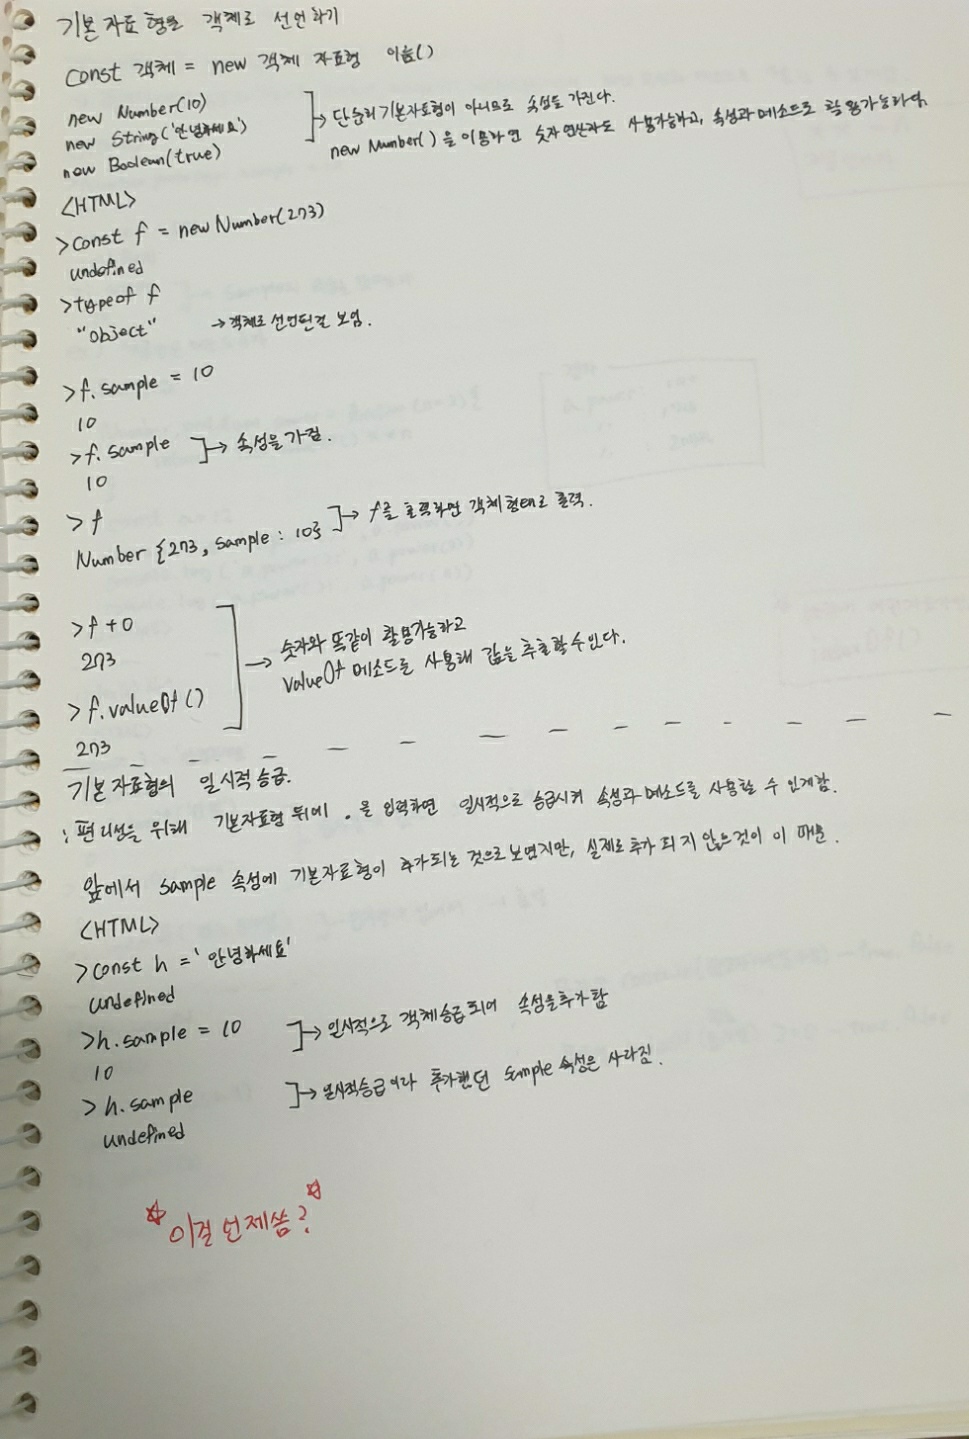 기본자료형을 객체로 선언하기
const 객체 = new 객체 자료형 이름()
new Number(10)
new String('안녕하세요')
new Boolean(true)
→ 단순히 기본자료형이 아니므로 속성을 가진다.
new Number( )을 이용하면 숫자연산자도 사용가능하고, 속성과 메소드도 활용가능하다.
<HTML>
>const f = new Number(273)
undefined
>typeof f
"object" → 객체로 선언된걸 보임.
>f.sample = 10
10
>f.sample ]→ 속성을 가짐.
10
>f
Number {273, sample : 10} ]→ f를 출력하면 객체형태로 출력.
>f+0
273
>f.valueOf()
273
→ 숫자와 똑같이 활용가능하고
valueOf 메소드를 사용해 값을 추출할수있다.
기본자료형의 일시적 승급.
: 편리성을 위해 기본자료형 뒤에 . 을 입력하면 일시적으로 승급시켜 속성과 메소드를 사용할 수 있게함.
앞에서 sample 속성에 기본자료형이 추가되는 것으로 보였지만, 실제로 추가 되지 않은것이 이 때문.
<HTML>
>const h = '안녕하세요'
undefined
>h.sample = 10 ]→ 일시적으로 객체승급되어 속성을추가함
10
>h.sample ]→ 일시적승급이라 추가했던 sample 속성은 사라짐.
undefined
☆이걸 언제씀?☆